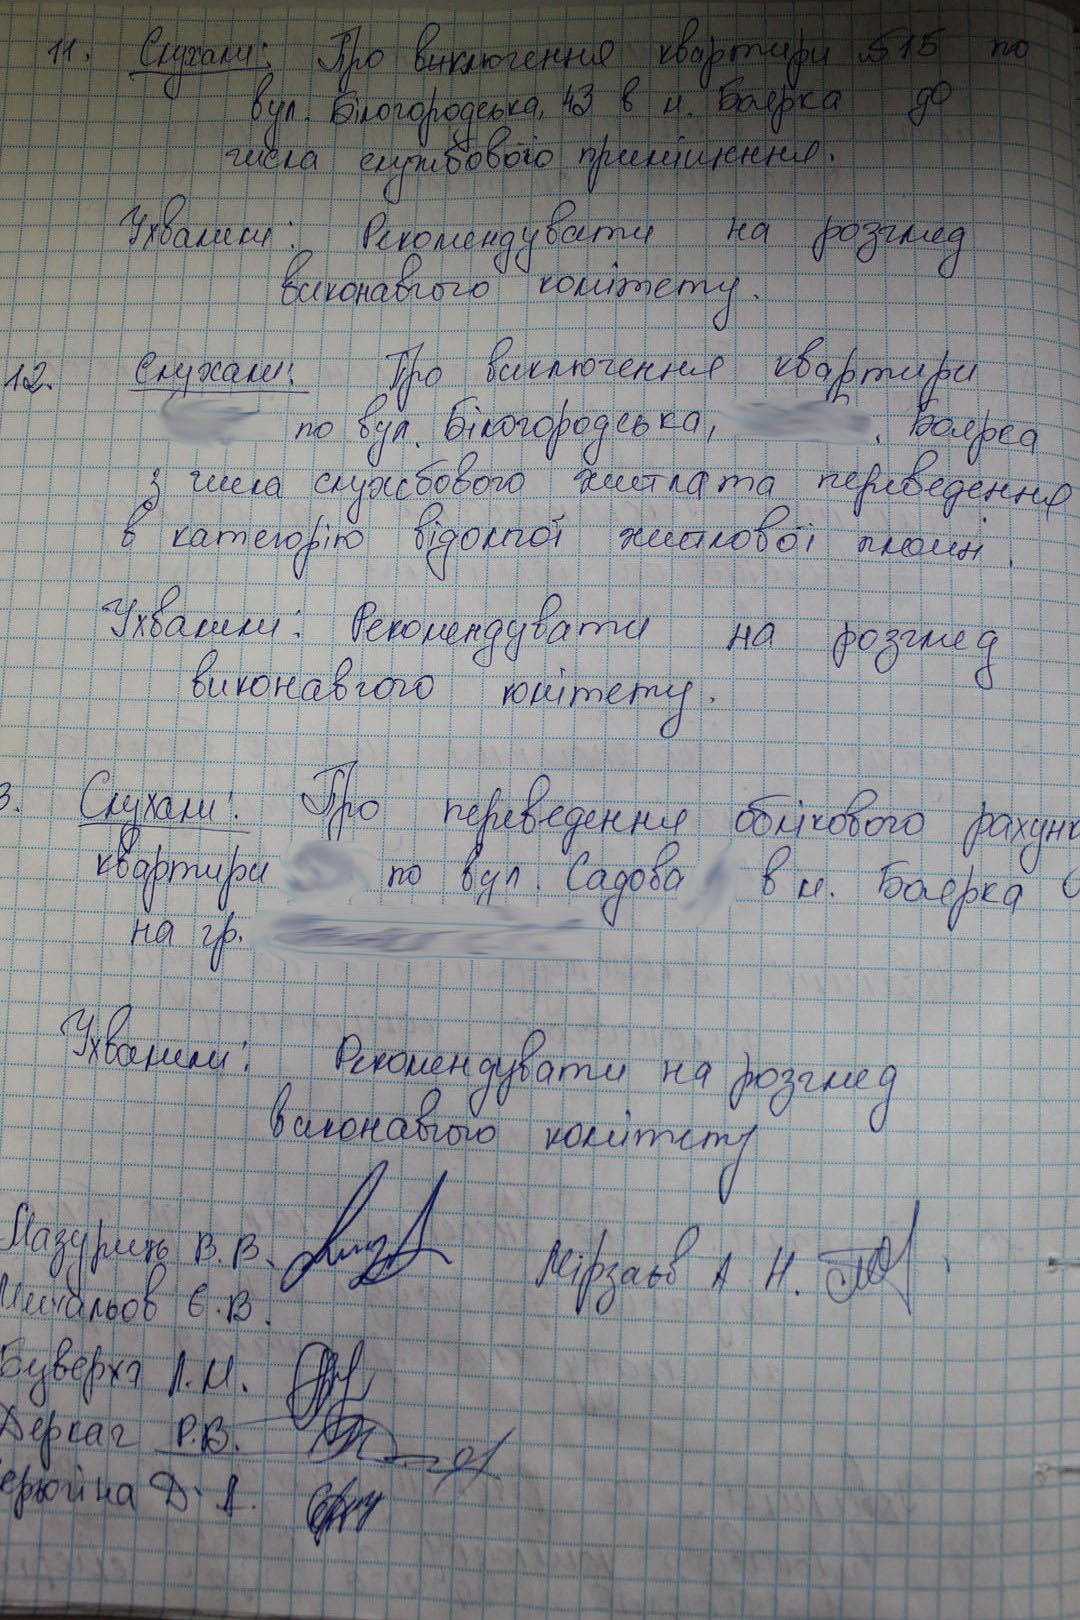 11. Слухали: Про виключення квартири 515 по
вул. Білогородська, 43 в м. Боярка до
числа службового приміщення.
Ухвалили: Рекомендувати на розгляд
виконавчого комітету.
12. Слухали: Про виключення квартири
по вул. Білогородська, . Боярка
з числа службового житла та переведення
в категорію відомчої житлової площі.
Ухвалили: Рекомендувати на розгляд
виконавчого комітету.
3. Слухали: Про переведення облікового рахунку
квартири по вул. Садова в м. Боярка
на гр.
Ухвалили: Рекомендувати на розгляд
виконавчого комітету
Мазурик В. В. Мірзаєв А Н.
Михальов Є. В.
Буверха Л. М.
Деркач Р. В.
Д. А.